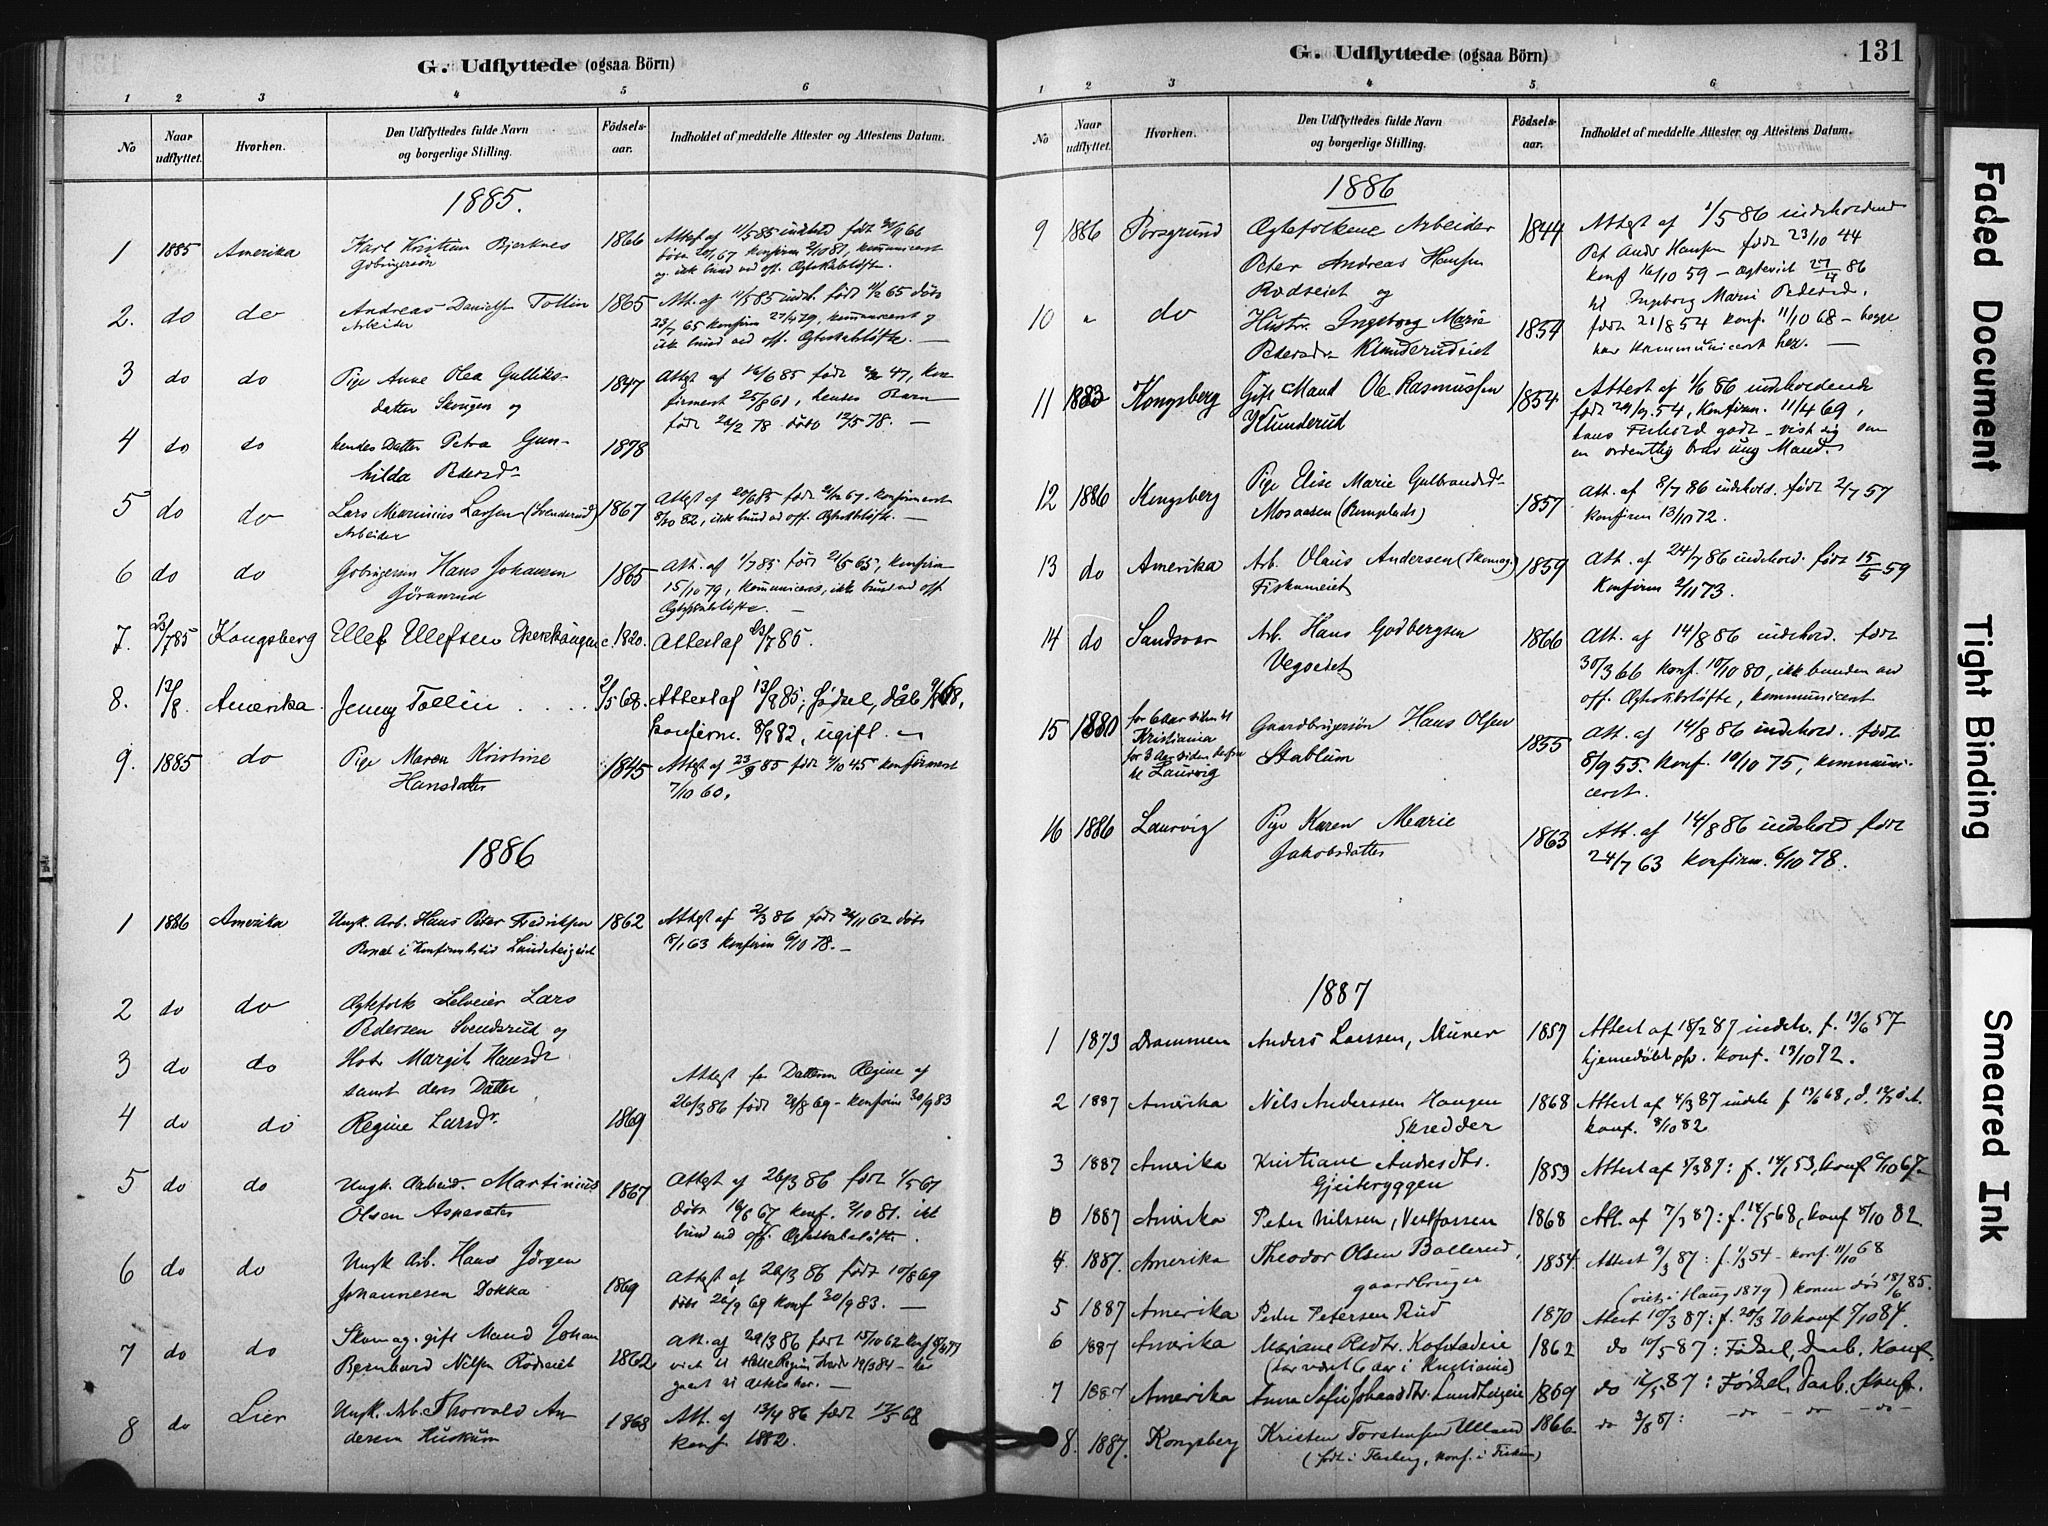 G. Udflyttede (ogsaa Börn)
1 2 3 4 5 6
No
Naar udflyttet.
Hvorhen.
Den Udflyttedes fulde Navn
og borgerlige Stilling.
Födsels-
aar.
Indholdet af meddelte Attester og Attestens Datum.
1885.
1 1885 Amerika Karl Kristian Bjerknes 1866 Attest af 11/5 85
2. do do Andreas Danielsen Tollin 1865 Att. af 11/5 85 indh. født 11/2 65 døbt
Arbeider 23/7 65 konfirm 27/4 79, kommunicert og
ikke bund ved off. Ægteskabsløfte. —
3 do do Pige Anne Olea Gulliks- 1847 Attest af 16/6 85 født
datter Skougen og firmert 25/8 61, hendes Barn
født 26/2 78 døbt 12/5 78. —
4 do do hendes Datter Petra Gun- 1878
hilda Pedersd.
5 do do Lars Marinius Larsen (Svenderud) 1867 konfirmert
Arbeider 8/10 82, ikke bund ved off. Ægteskabsløfte. —
6 do do Gbrugersøn Hans Johansen 1865 Att. af 1/7 85 født 21/5 65, konfirm
15/10 79, kommunicert, ikke bund ved off.
Ægteskabsløfte. —
7. 23/7 85 Kongsberg Ellef Ellefsen c. 1820. Attest af 23/7 85.
8. 13/8 Amerika. Jenny Tollin . . . . 2/5 68. Attest af 13/8 85, fødsel, dåb
konfirm. 8/9 82, ugift.
9. 1885 do Pige Maren Kristine 1845 Attest af 23/9 85 født 4/10 45 konfirmert
Hansdatter 7/10 60.
1886
1 1886 Amerika Ungk. Arb. Hans Peter Fredriksen 1862 Attest af 2/3 86 født 26/11 62 døbt
18/1 63 konfirm 6/10 78. —
2 do do Ægtefolk Selveier Lars
Pedersen Svenderud og
3 do do Hstr Margit Hansdr
samt deres Datter Attest for Datteren Regine af
26/3 86 født 21/8 69 – konfirm 30/9 83
4 do do Regine Larsdr. 1869
5 do do Ungk. Arbeid. Martinius 1867 Attest af 26/3 86 født 1/5 67
Olsen døbt 16/6 67 konf. 2/10 81. ikke
bund ved off. Ægteskabsløfte.
6 do do Ungk Arb. Hans Jörgen
Johannesen Dokka 1869 Attest af 26/3 86 født 10/8 69
døbt 26/9 69 konf 30/9 83. —
7 do do Skomag. gift Mand Johan 1862 Att. af 29/3 86 født 15/10 62
Bernhard Nilsen Rödseiet
8 do Lier Ungk. Arb. Thorvald An 1868 Att. af 13/4 86 født 17/5 68
dersen Huskum konf. 1882.
G. Udflyttede (ogsaa Börn) 131
1 2 3 4 5 6
No
Naar udflyttet.
Hvorhen.
Den Udflyttedes fulde Navn
og borgerlige Stilling.
Födsels-
aar.
Indholdet af meddelte Attester og Attestens Datum.
1886
9 1886 Porsgrund Ægtefolkene Arbeider 1844 Attest af 1/5 86 indeholdend
Peter Andreas Hansen Pet Andr Hansen født 23/10 44
Rødseiet og konf 16/10 59 – Ægteviet 27/4 86
10 " do Hustr. Ingeborg Marie 1854 til Ingeborg Marie Pedersd.
født 21/8 54 konf. 11/10 68 – begge
Pedersdr Klunderudeiet har kommunicert her. —
11 1883 Kongsberg Gift Mand Ole Rasmussen 1854 Attest af 1/6 86 indeholdende
Klunderud født 24/9 54, konfirm. 11/4 69,
hans Forhold godt – vist sig som
en ordentlig brav ung Mand.
12 1886 Kongsberg Pige Elise Marie Gulbrandsd. 1857 Att. af 8/7 86 indehold. født 2/7 57
Mosaasen konfirm 13/10 72.
13 do Amerika Arb. Olaus Andersen (Skomag.) 1859 Att. af 24/7 86 indehold. født 15/5 59
Fiskumeiet Konfirm 2/11 73.
14 do Sandsvær Arb. Hans Godbergsen 1866 Att. af 14/8 86 indehold. født
30/3 66 konf. 10/10 80, ikke bunden ved
off. Ægteskabsløfte, kommunicert
15 1880 for 6 Aar siden til Kristiania Gaardbrugersøn Hans Olsen 1855 Att. af 14/8 86 indehold. født
for 3 Aar siden til Laurvig Stablum 8/9 55. konf. 10/10 75, kommuni-
cert.
16 1886 Laurvig Pige Karen Marie 1863 Att. af 14/8 86 indehold født
Jakobsdatter 24/7 63 konfirm. 6/10 78.
1887
1 1873 Drammen Anders Larssen, Murer 1857 Attest af 18/2 87 indeh. f. 13/6 57
hjemedöbt konf. 13/10 72.
2 1887 Amerika Nils Anderssen Haugen 1868 Attest af 4/3 87 indeh f 13/6 68,
Skredder konf. 8/10 82
3 1887 Amerika Kristiane Andersdtr. 1853 Attest af 5/3 87: f. 14/1 53, konf 6/10 67.
Gjeiberyggen
0 1887 Amerika Peter Nilssen, Vestfossen 1868 Att. af 7/3 87: f. 14/5 68, konf 8/10 82
4 1887. Amerika Theodor Olsen Bollerud, 1854. Attest 9/3 87: f. 1/3 54 – konf. 11/10 68
gaardbruger (viet i Haug 1879) konen død 18/6 85.
5 1887 Amerika Peder Petersen Rud 1870 Attest 10/3 87: f. 20/3 70 konf 5/10 84.
6 1887 Amerika Mariane Pedtr. Kofstadeie 1862 do 10/5 87: Fødsel, Daab, Konf.
(har været 6 aar i Kristiania)
7 1887 Amerika Anna Sofie Johansdtr. Lundteigeie 1869 do 12/5 87: Fødsel, Daab, Konf.
8. 1887. Kongsberg Kristen Torstensen Ulland 1866. do 3/8 87: – do – do – do –
(født i Flesberg, konf. i Fiskum)
Faded Document
Tight Binding
Smeared Ink